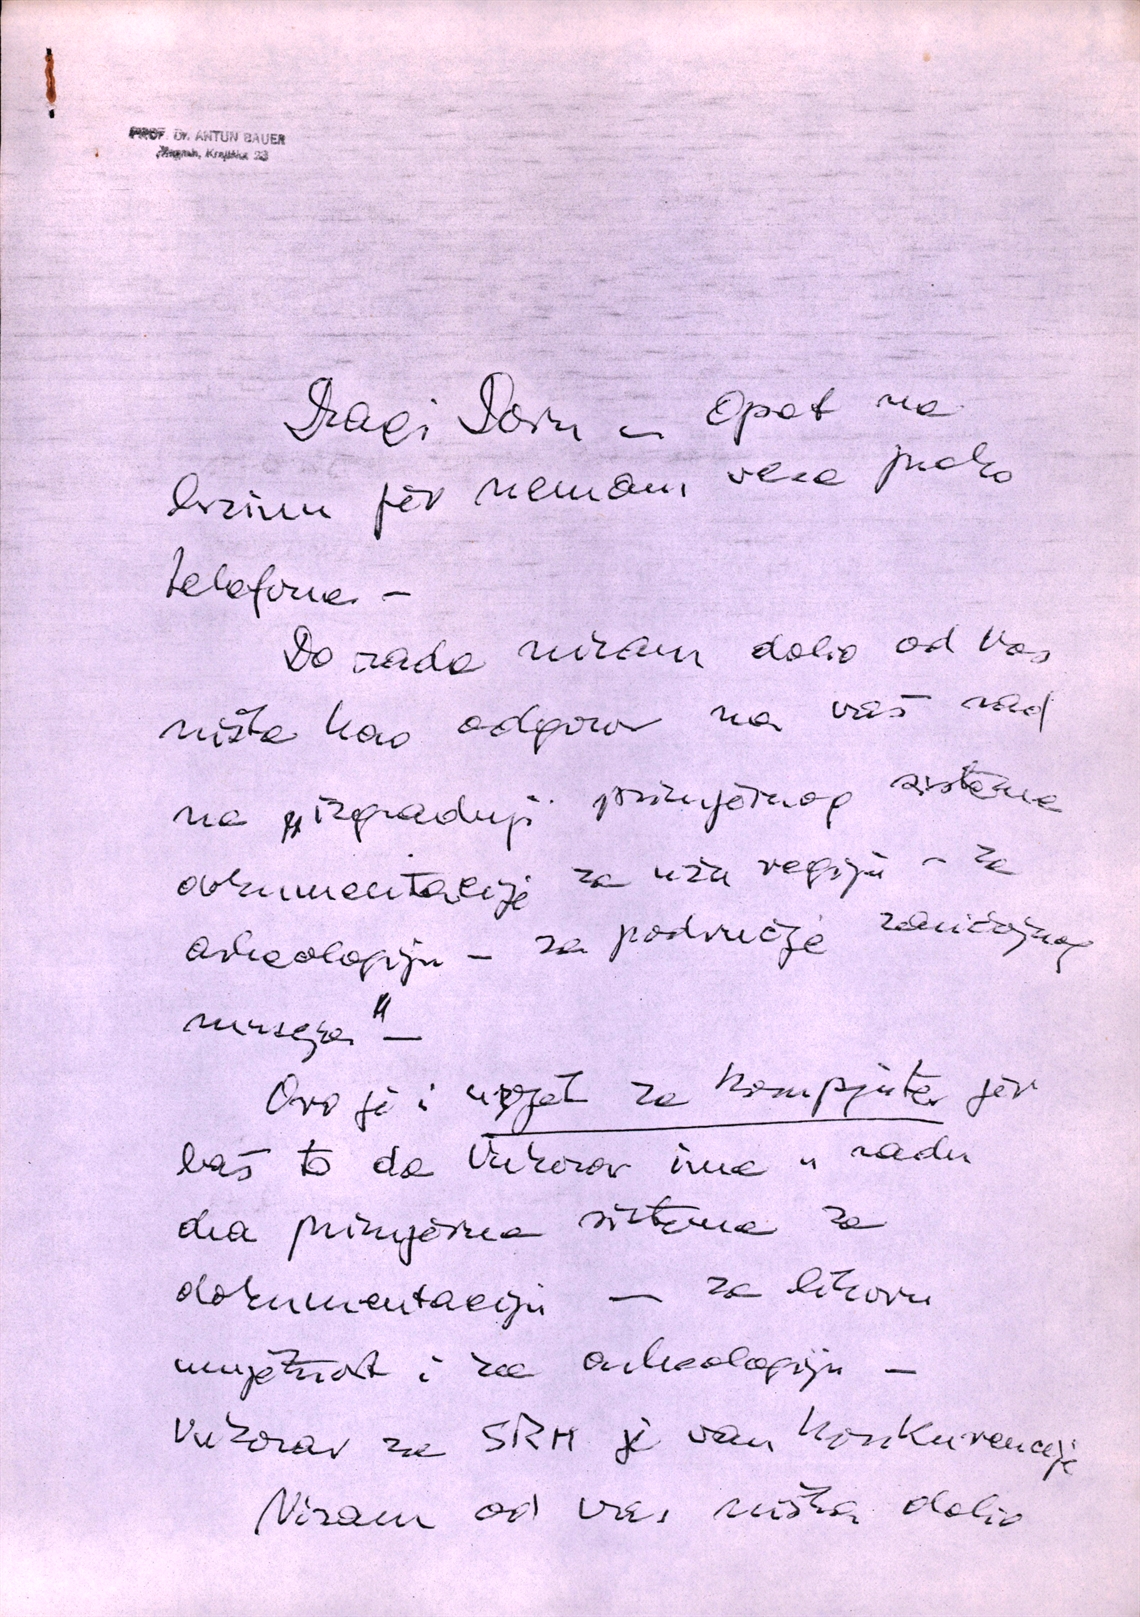 PROF. Dr. ANTUN BAUER
Zagreb, Krajiška 23
Dragi Dorn – Opet na
brzinu jer nemam veze preko
telefona –
Do sada nisam dobio od Vas
ništa kao odgovor na vaš rad
na „izgradnji primjernog sistema
dokumentacije za užu regiju – za
arheologiju – za područje zavičajnog
muzeja" –
Ovo je i uvjet za kompjuter jer
baš to da Vukovar ima u radu
dva primjerna sistema za
dokumentaciju – za likovnu
umjetnost i za arheologiju –
Vukovar za SRH je van konkurencije
Nisam od vas ništa dobio